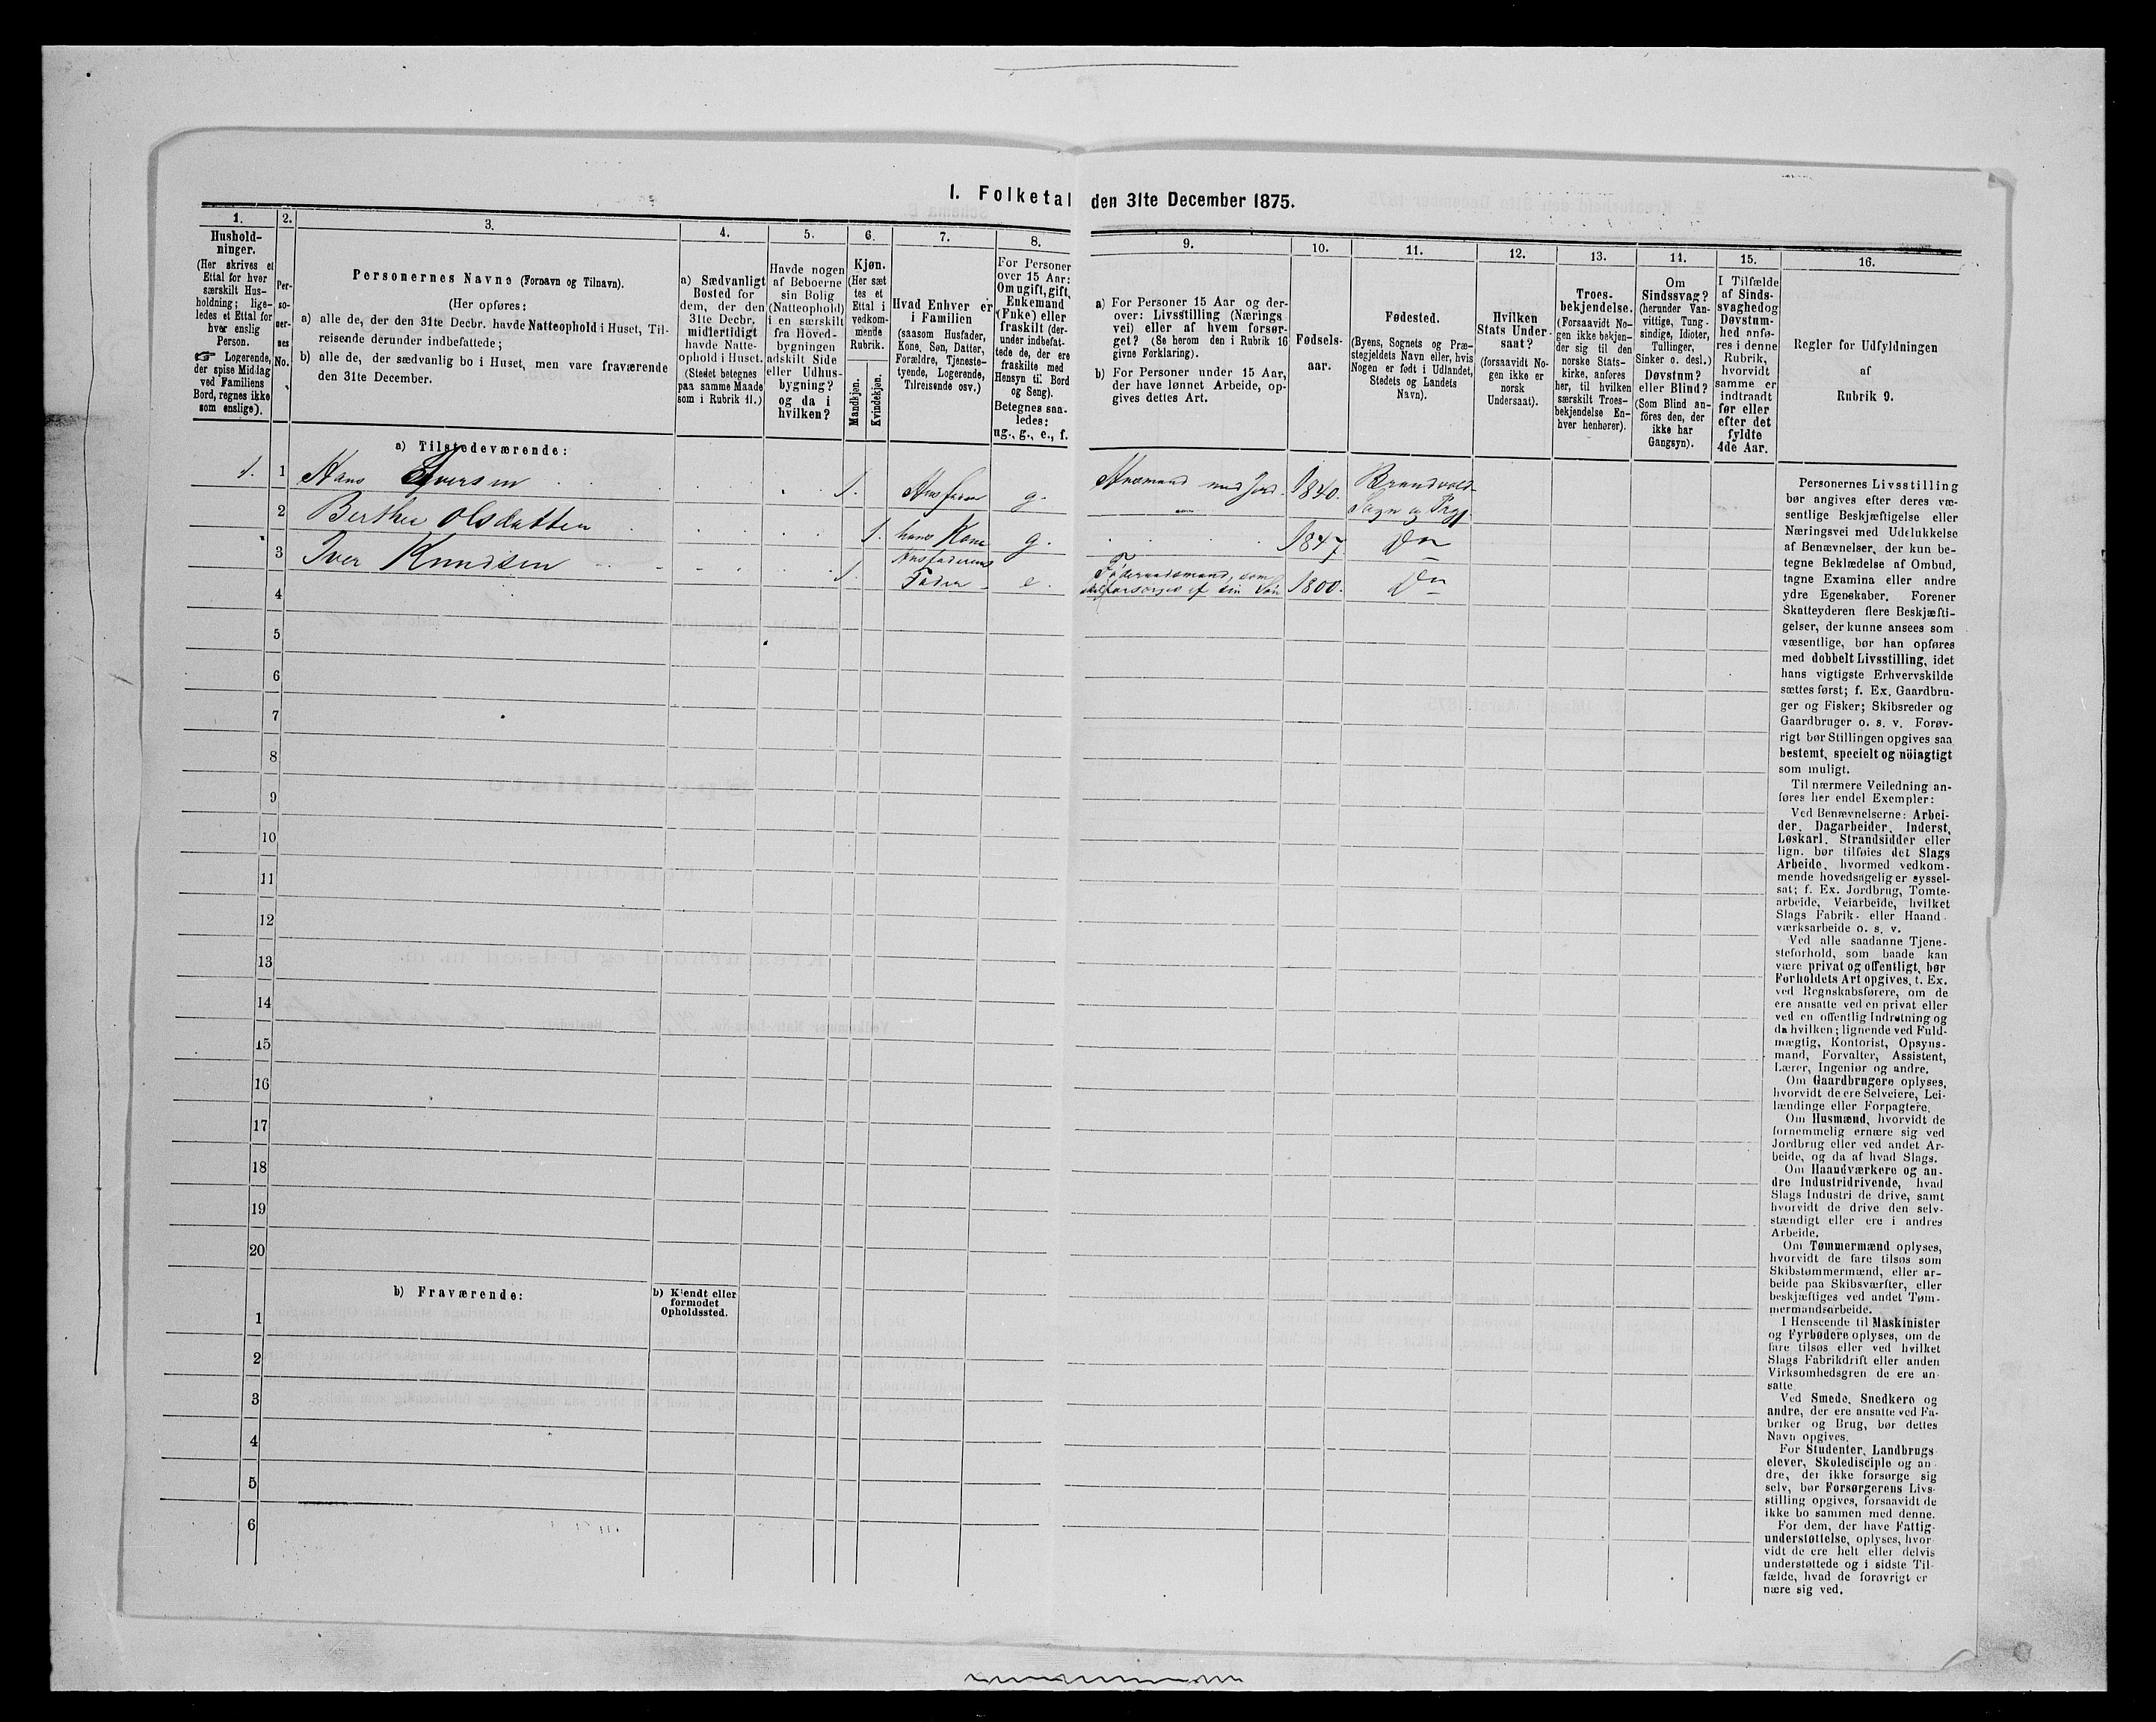 I. Folketal den 31te December 1875.
1.
Hushold-
ninger.
(Her skrives et
Ettal for hver
særskilt Hus-
holdning; lige-
ledes et Ettal for
hver enslig
Person.
☞ Logerende,
der spise Middag
ved Familiens
Bord, regnes ikke
som enslige).
2.
Per-
so-
ner-
nes
No.
3.
Personernes Navne (Fornavn og Tilnavn).
(Her opføres:
a) alle de, der den 31te Decbr. havde Natteophold i Huset, Til-
reisende derunder indbefattede;
b) alle de, der sædvanlig bo i Huset, men vare fraværende
den 31te December.
4.
a) Sædvanligt
Bosted for
dem, der den
31te Decbr.
midlertidigt
havde Natte-
ophold i Huset.
(Stedet betegnes
paa samme Maade
som i Rubrik 11.)
5.
Havde nogen
af Beboerne
sin Bolig
(Natteophold)
i en særskilt
fra Hoved-
bygningen
adskilt Side
eller Udhus-
bygning?
og da i
hvilken?
6.
Kjøn.
(Her sæt
tes et
Ettal i
vedkom-
mende
Rubrik.
Mandkjøn.
Kvindekjøn.
7.
Hvad Enhver er
i Familien
(saasom Husfader,
Kone, Søn, Datter,
Forældre, Tjeneste-
tyende, Logerende,
Tilreisende osv.)
8.
For Personer
over 15 Aar:
Om ugift, gift,
Enkemand
(Enke) eller
fraskilt (der-
under indbefat-
tede de, der ere
fraskilte med
Hensyn til Bord
og Seng).
Betegnes saa-
ledes:
ug., g., e., f.
9.
a) For Personer 15 Aar og der-
over: Livsstilling (Nærings
vei) eller af hvem forsør-
get? (Se herom den i Rubrik 16
givne Forklaring).
b) For Personer under 15 Aar,
der have lønnet Arbeide, op-
gives dettes Art.
10.
Fødsels-
aar.
11.
Fødested.
(Byens, Sognets og Præ-
stegjeldets Navn eller, hvis
Nogen er født i Udlandet,
Stedets og Landets
Navn).
12.
Hvilken
Stats Under-
saat?
(forsaavidt No-
gen ikke er
norsk
Undersaat).
13.
Troes-
bekjendelse.
(Forsaavidt No-
gen ikke bekjen-
der sig til den
norske Stats-
kirke, anføres
her, til hvilken
særskilt Troes-
bekjendelse En-
hver henhører).
14.
Om
Sindssvag?
(herunder Van-
vittige, Tung-
sindige, Idioter,
Tullinger,
Sinker o. desl.)
Døvstum?
eller Blind?
(Som Blind an-
føres den, der
ikke har
Gangsyn).
15.
I Tilfælde
af Sinds-
svaghed og
Døvstum-
hed anfø-
res i denne
Rubrik,
hvorvidt
samme er
indtraadt
før eller
efter det
fyldte
4de Aar.
16.
Regler for Udfyldningen
af
Rubrik 9.
a) Tilstedeværende:
1. 1 Hans Iversen 1. Husfader g. Husmand med Jord 1840. Brandvold
Sogn og Prgj.
2 Berthe Olsdatter 1. hans Kone g. 1847 Do
3 Iver Knudsen 1. Husfaderens
Fader e. Föderaadsmand, som
forsörges af sin Sön 1800. Do
4
5
6
7
8
9
10
11
12
13
14
15
16
17
18
19
20
b) Fraværende:
b) Kjendt eller
formodet
Opholdssted.
1
2
3
4
5
6
Personernes Livsstilling
bør angives efter deres væ-
sentlige Beskjæftigelse eller
Næringsvei med Udelukkelse
af Benævnelser, der kun be-
tegne Beklædelse af Ombud,
tagne Examina eller andre
ydre Egenskaber. Forener
Skatteyderen flere Beskjæfti-
gelser, der kunne ansees som
væsentlige, bør han opføres
med dobbelt Livsstilling, idet
hans vigtigste Erhvervskilde
sættes først; f. Ex. Gaardbru-
ger og Fisker; Skibsreder og
Gaardbruger o. s. v. Forøv-
rigt bør Stillingen opgives saa
bestemt, specielt og nöiagtigt
som muligt.
Til nærmere Veiledning an-
føres her endel Exempler:
Ved Benævnelserne: Arbei-
der, Dagarbeider, Inderst,
Løskarl, Strandsidder eller
lign. bør tilføies det Slags
Arbeide, hvormed vedkom-
mende hovedsagelig er syssel-
sat; f. Ex. Jordbrug, Tomte-
arbeide, Veiarbeide, hvilket
Slags Fabrik- eller Haand-
værksarbeide o. s. v.
Ved alle saadanne Tjene-
steforhold, som baade kan
være privat og offentligt, bør
Forholdets Art opgives, f. Ex.
ved Regnskabsførere, om de
ere ansatte ved en privat eller
ved en offentlig Indretning og
da hvilken; lignende ved Fuld-
mægtig, Kontorist, Opsyns-
mand, Forvalter, Assistent,
Lærer, Ingeniør og andre.
Om Gaardbrugere oplyses,
hvorvidt de ere Selveiere, Lei-
lændinge eller Forpagtere.
Om Husmænd, hvorvidt de
fornemmelig ernære sig ved
Jordbrug eller ved andet Ar-
beide, og da af hvad Slags.
Om Haandværkere og an-
dre Industridrivende, hvad
Slags Industri de drive, samt
hvorvidt de drive den selv-
stændigt eller ere i andres
Arbeide.
Om Tømmermænd oplyses,
hvorvidt de fare tilsøs som
Skibstømmermænd, eller ar-
beide paa Skibsværfter, eller
beskjæftiges ved andet Tøm-
mermandsarbeide.
I Henseende til Maskinister
og Fyrbødere oplyses, om de
fare tilsøs eller ved hvilket
Slags Fabrikdrift eller anden
Virksomhedsgren de ere an-
satte.
Ved Smede, Snedkere og
andre, der ere ansatte ved Fa-
briker og Brug, bør dettes
Navn opgives.
For Studenter, Landbrugs-
elever, Skoledisciple og an-
dre, der ikke forsørge sig
selv, bør Forsørgerens Livs-
stilling opgives, forsaavidt de
ikke bo sammen med denne.
For dem, der have Fattig-
understøttelse, oplyses, hvor-
vidt de ere helt eller delvis
understøttede og i sidste Til-
fælde, hvad de forøvrigt er
nære sig ved.